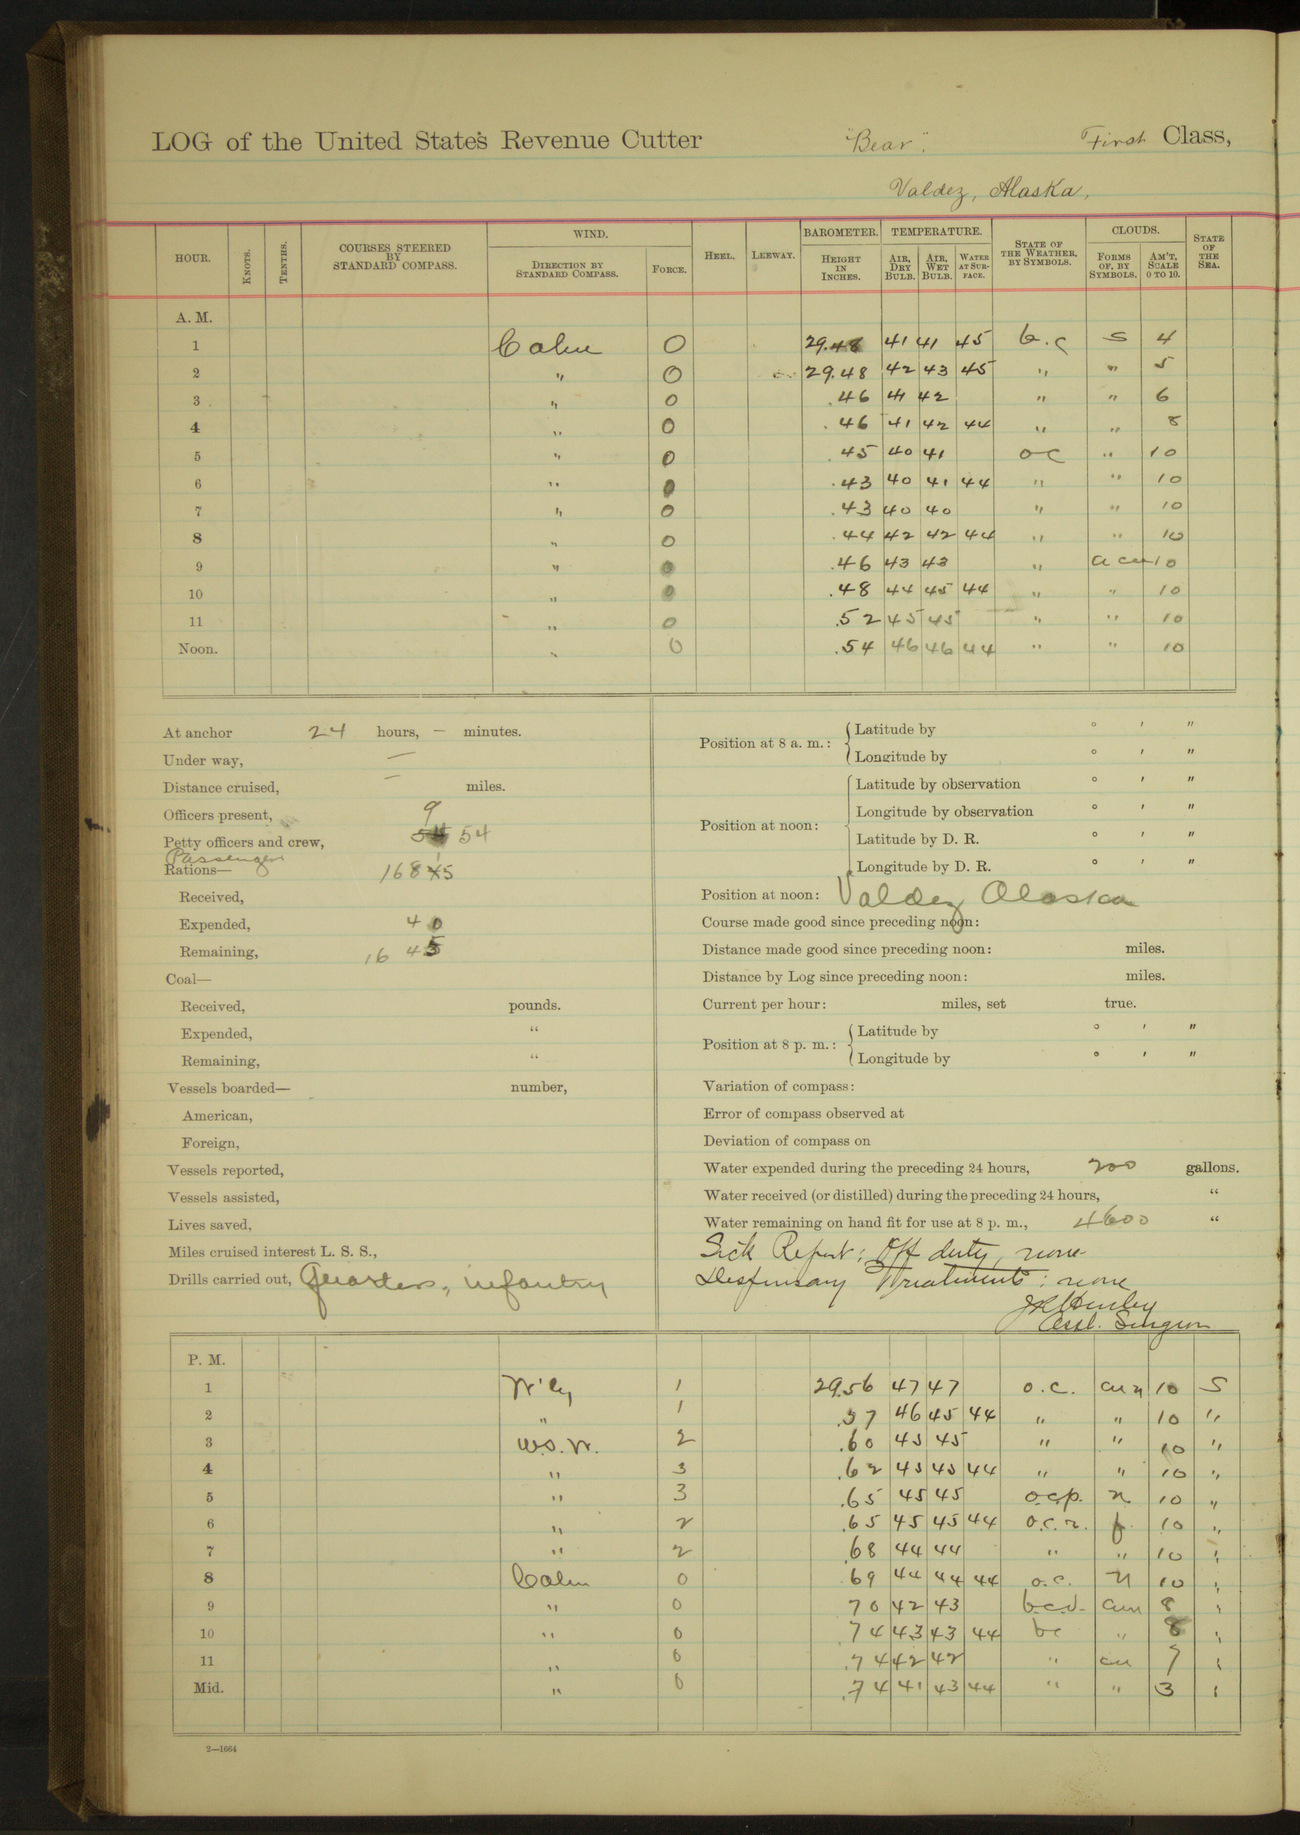 LOG of the United State's Revenue Cutter "Bear". First Class,
Valdez, Alaska,
HOUR. KNOTS. TENTHS. COURSES STEERED BY STANDARD COMPASS. WIND. DIRECTION BY STANDARD COMPASS. FORCE. HEEL. LEEWAY. BAROMETER. HEIGHT IN INCHES. TEMPERATURE. AIR, DRY BULB. AIR, WET BULB. WATER AT SURFACE. STATE OF THE WEATHER, BY SYMBOLS. CLOUDS. FORMS OF, BY SYMBOLS. AM'T, SCALE 0 TO 10. STATE OF THE SEA.
A. M.
1 Calm 0 29.48 41 41 45 b.c S 4
2 " 0 29.48 42 43 45 " " 5
3 " 0 .46 41 42 " " 6
4 " 0 .46 41 42 44 " " 8
5 " 0 .45 40 41 oc " 10
6 " 0 .43 40 41 44 " " 10
7 " 0 .43 40 40 " " 10
8 " 0 .44 42 42 44 " " 10
9 " 0 .46 43 43 " a cu 10
10 " 0 .48 44 45 44 " " 10
11 " 0 .52 45 45 " " 10
Noon. " 0 .54 46 46 44 " " 10
At anchor 24 hours, — minutes.
Under way, —
Distance cruised, — miles.
Officers present, 9
Petty officers and crew, 54
Passenger 1
Rations— 1685
Received,
Expended, 40
Remaining, 1645
Coal—
Received, pounds.
Expended, "
Remaining, "
Vessels boarded— number,
American,
Foreign,
Vessels reported,
Vessels assisted,
Lives saved,
Miles cruised interest L. S. S.,
Drills carried out, Quarters, infantry
Position at 8 a. m.: Latitude by ° ' "
Longitude by ° ' "
Position at noon: Latitude by observation ° ' "
Longitude by observation ° ' "
Latitude by D. R. ° ' "
Longitude by D. R. ° ' "
Position at noon: Valdez Alaska
Course made good since preceding noon:
Distance made good since preceding noon: miles.
Distance by Log since preceding noon: miles.
Current per hour: miles, set true.
Position at 8 p. m.: Latitude by ° ' "
Longitude by ° ' "
Variation of compass:
Error of compass observed at
Deviation of compass on
Water expended during the preceding 24 hours, 200 gallons.
Water received (or distilled) during the preceding 24 hours, "
Water remaining on hand fit for use at 8 p. m., 4600 "
Sick Report: Off duty, none
Dispensary Treatments: none
Asst. Surgeon
P. M.
1 W'ly 1 29.56 47 47 o.c. cu n 10 S
2 " 1 .57 46 45 44 " " 10 "
3 W.S.W. 2 .60 45 45 " " 10 "
4 " 3 .62 45 45 44 " " 10 "
5 " 3 .65 45 45 o.c.p. n 10 "
6 " 2 .65 45 45 44 o.c.r. 10 "
7 " 2 .68 44 44 " " 10 "
8 Calm 0 .69 44 44 44 o.c. n 10 "
9 " 0 70 42 43 8 "
10 " 0 .74 43 43 44 bc " 8 "
11 " 0 .74 42 42 " cu 7 "
Mid. " 0 .74 41 43 44 " " 3 "
2—1664